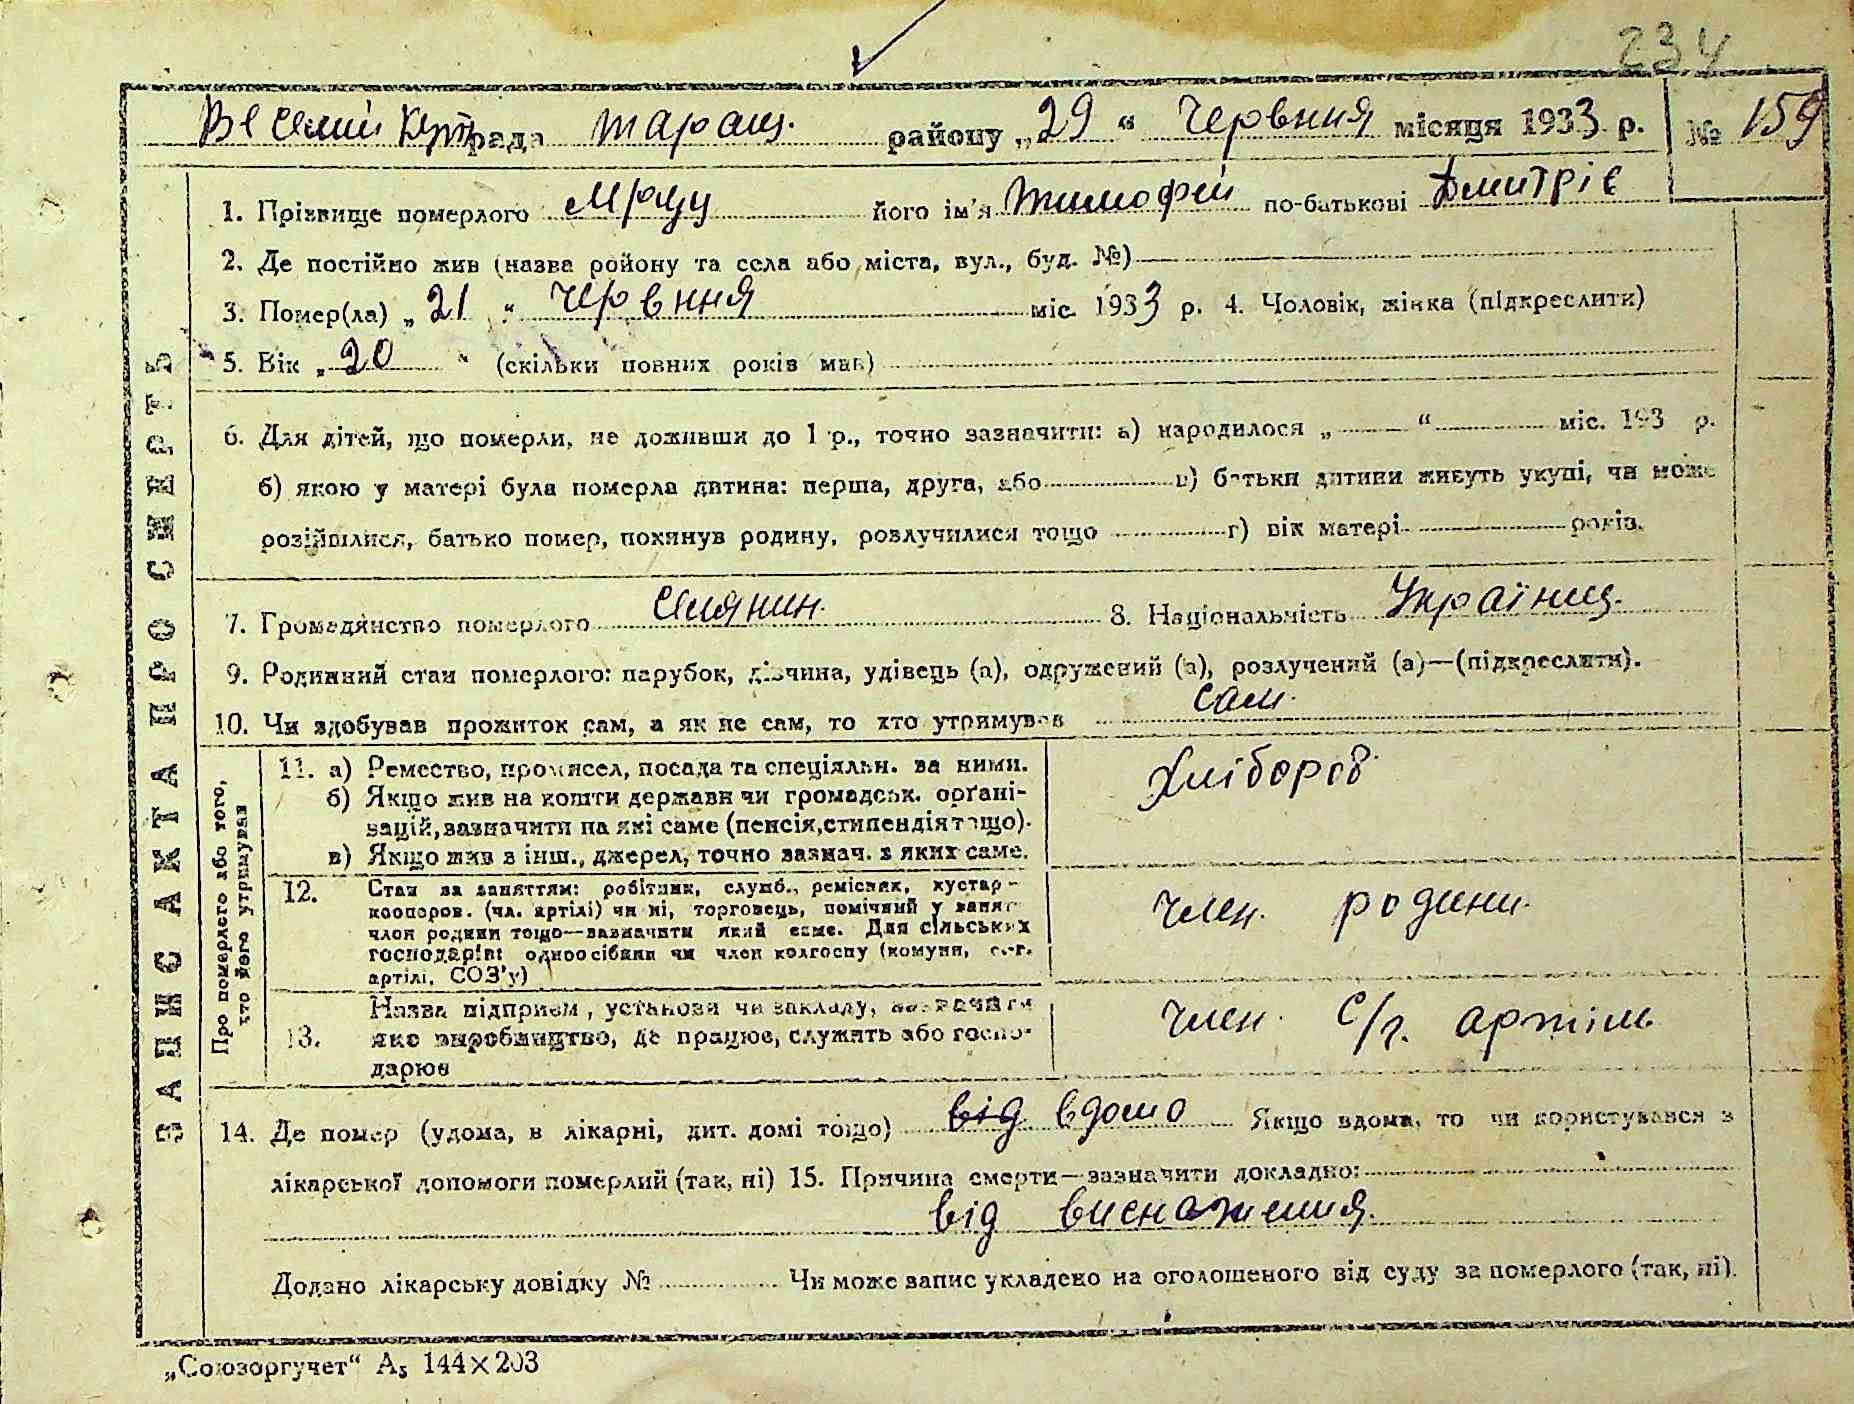 234
Веселий Кутрада таращ. району „29“ червння місяця 1933 р. № 159
1. Прізвище померлого його ім'я Тимофей по-батькові Дмитріє
2. Де постійно жив (назва ройону та села або міста, вул., буд. №)
3. Помер(ла) „21“ червння міс. 1933 р. 4. Чоловік, жінка (підкреслити)
5. Вік „20“ (скільки повних років мав)
6. Для дітей, що померли, не доживши до 1 р., точно зазначити: а) народилося „ “ міс. 193 р.
б) якою у матері була померла дитина: перша, друга, або в) батьки дитини живуть укупі, чи може
розійшлися, батько помер, покинув родину, розлучилися тощо г) вік матері років.
7. Громадянство померлого селянин. 8. Національність Україниц.
9. Родинний стан померлого: парубок, дівчина, удівець (а), одружений (а), розлучений (а)—(підкреслити).
10. Чи здобував прожиток сам, а як не сам, то хто утримував сам.
ЗАПИС АКТА ПРО СМЕРТЬ
Про померлого або того, хто його утримував
11. а) Ремество, промисел, посада та спеціяльн. за ними.
б) Якщо жив на кошти держави чи громадськ. орґані-
зацій, зазначити на які саме (пенсія, стипендія тощо).
в) Якщо жив з інш., джерел, точно зазнач. з яких саме.
Хлібороб.
12. Стан за заняттям: робітник, служб., ремісник, кустар-
кооперов. (чл. артілі) чи ні, торговець, помічний у занят
член родини тощо—зазначити який саме. Для сільських
господарів: одноосібник чи член колгоспу (комуни, с.-г.
артілі, СОЗ'у)
член. родини.
13. Назва підприєм, установи чи закладу, зазначити
яке виробництво, де працює, служить або госпо-
дарює
член. с/г. артіль
14. Де помер (удома, в лікарні, дит. домі тощо) від вдомо Якщо вдома, то чи користувався з
лікарської допомоги померлий (так, ні) 15. Причина смерти—зазначити докладно:
від виснаження.
Додано лікарську довідку № Чи може запис укладено на оголошеного від суду за померлого (так, ні).
„Союзоргучет“ А5 144×203